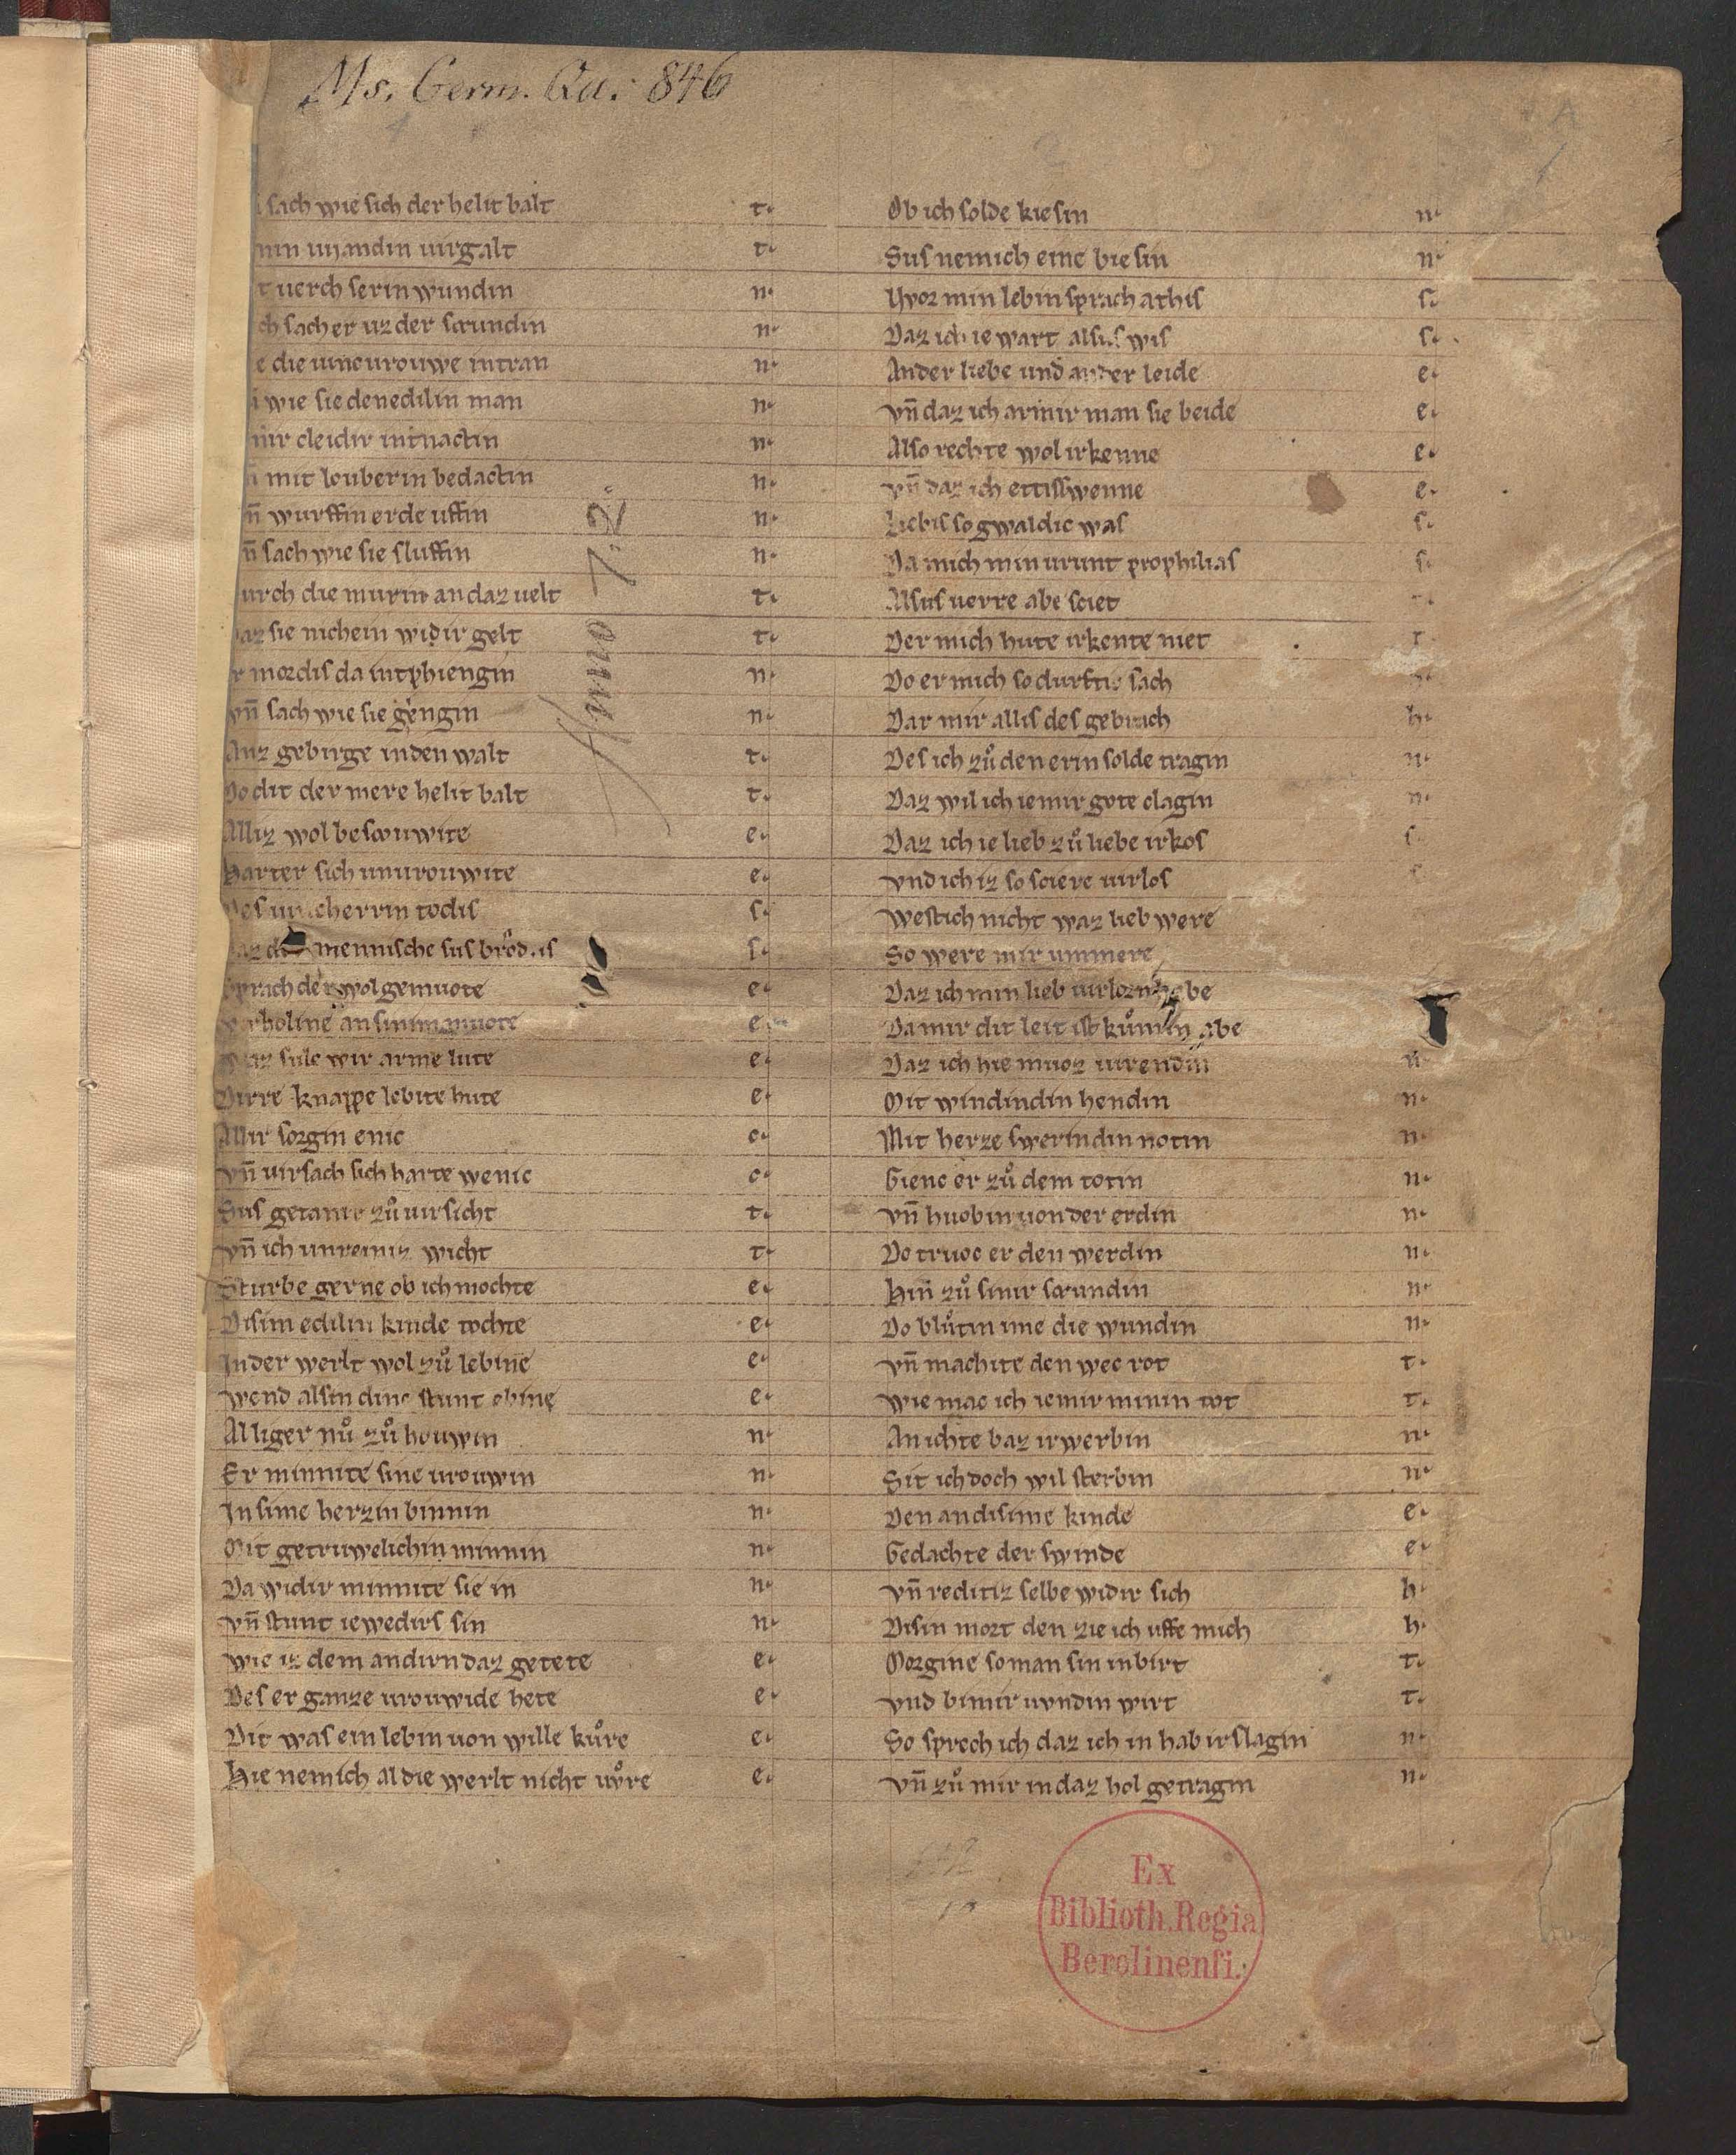 Ms. Germ. Qu. 846
sach wie sich der helit balt t.
uiandin uirgalt t.
uerch serin wundin n.
sach er uz der scrundin n.
die iuncurouwe intran n.
wie sie den edilin man n.
cleidir intnactin n.
mit louberin bedactin n.
vn̄ wurffin erde uffin n.
vn̄ sach wie sie sluffin n.
durch die murin an daz uelt t.
daz sie nichein widir gelt t.
mordis da intphiengin n.
vn̄ sach wie sie gengin n.
Anz gebirge in den walt t.
Do dit der mere helit balt t.
Alliz wol bescouwite e.
Harter sich unurouwite e.
Des herrin todis s.
mennische sus brodis s.
Sprach der wolgemuote e.
an sinim muote e.
Waz sule wir arme lute e.
Dirre knappe lebite hute e.
Allir sorgin enic c.
vn̄ uirsach sich harte wenic c.
Sus getanir zuͦ uirsicht t.
vn̄ ich unreiniz wicht t.
Sturbe gerne ob ich mochte e.
Disim edilin kinde tochte e.
In der werlt wol zuͦ lebine e.
Wend alsin dinc stunt ebine e.
Alliger nuͦ zuͦ houwin n.
Er minnite sine urouwin n.
In sime herzin binnin n.
Mit getruwelichin minnin n.
Da widir minnite sie in n.
vn̄ stunt iewedirs sin n.
Wie iz dem andirn daz getete e.
Des er ganze urouwide hete e.
Dit was ein lebin uon wille kuͦre e.
Hie nem ich al die werlt nicht uuͦre e.
Anno 7.2.
Ob ich solde kiesin n.
Sus nem ich eine biesin n.
Uvor min lebin sprach athis s.
Daz ich ie wart alsus wis s.
Ander liebe und ander leide e.
vn̄ daz ich armir man sie beide e.
Also rechte wol irkenne e.
vn̄ daz ich ettisswenne e.
Liebis so gwaldic was s.
Da mich min urunt prophilias s.
Alsus uerre abe sciet
Der mich hute irkente niet t.
Do er mich so durftic sach
Dar mir allis des gebrach h.
Des ich zuͦ den erin solde tragin n.
Daz wil ich iemir gote clagin n.
Daz ich ie lieb zuͦ liebe irkos s.
vnd ich iz so sciere uirlos
Westich nicht waz lieb were
So were mir ummere
Daz ich min lieb uirlorn habe
Da mir dit leit ist kuͦmin abe
Daz ich hie muoz uirendin n.
Mit windindin hendin n.
Mit herze swerindin notin n.
Gienc er zuͦ dem totin n.
vn̄ huob in uon der erdin n.
Do truoc er den werdin n.
Hin zuͦ sinir scrundin n.
Do bluͦtin ime die wundin n.
vn̄ machite den wec rot t.
Wie mac ich iemir minin tot t.
An ichte baz irwerbin n.
Sit ich doch wil sterbin n.
Den an disime kinde e.
Gedachte der swinde e.
vn̄ reditiz selbe widir sich h.
Disin mort den zie ich uffe mich h.
Morgine so man sin inbirt t.
vnd bi mir uvndin wirt t.
So sprech ich daz ich in hab irslagin n.
vn̄ zuͦ mir in daz hol getragin n.
Ex
Biblioth. Regia
Berolinensi.